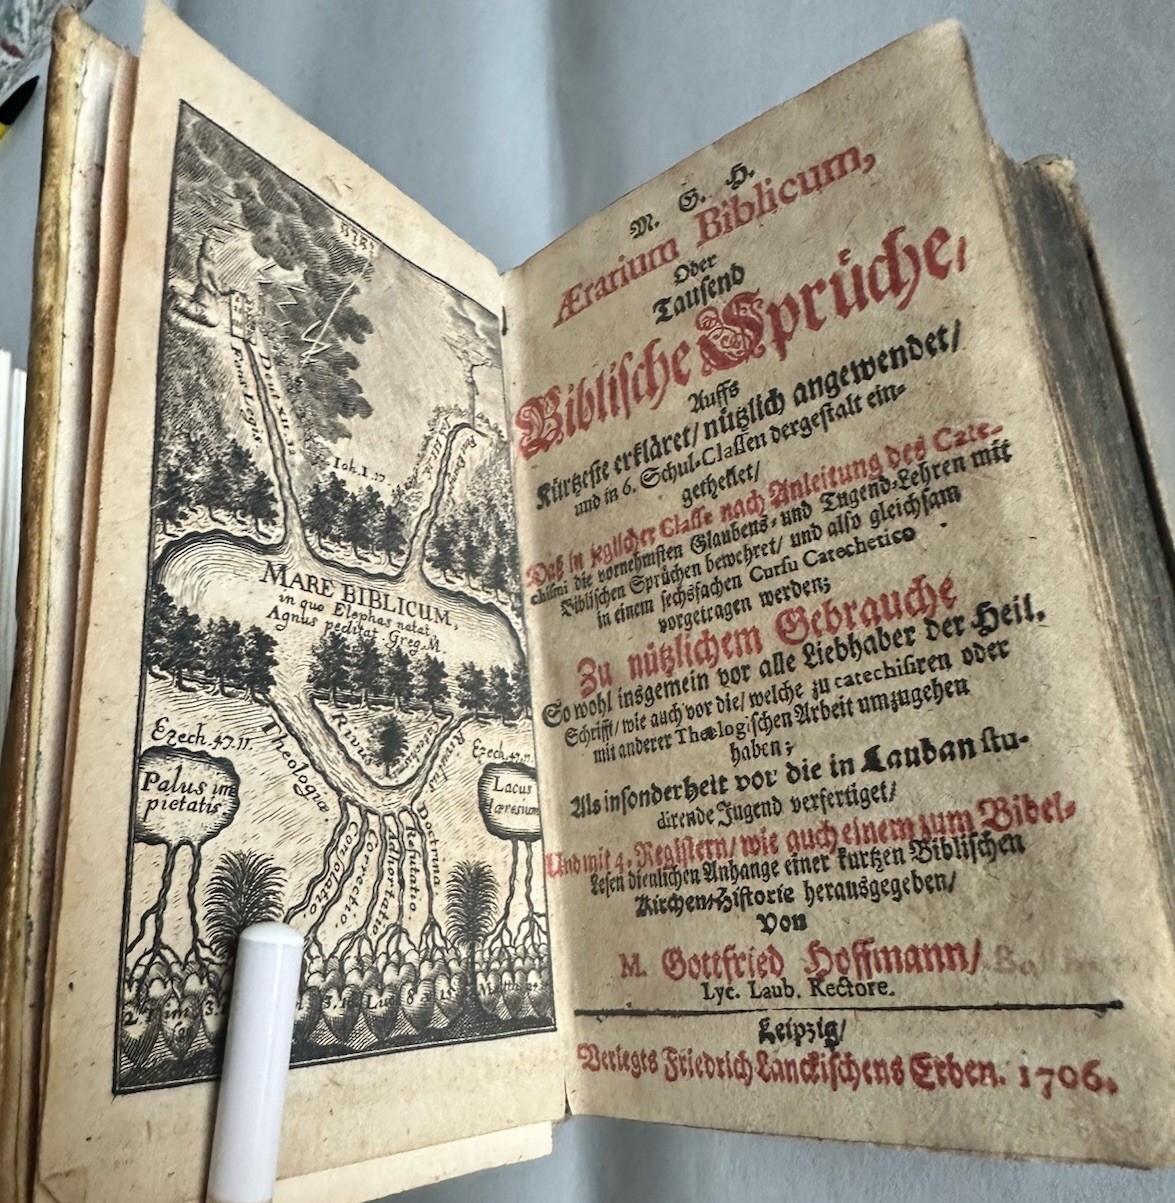 Fons Legis
Deut XII. 32
Ioh. I. 17.
MARE BIBLICUM,
in quo Elephas natat,
Agnus peditat. Greg. M.
Ezech. 47. 11.
Palus im
pietatis
Theologiæ.
Rivus
Rivulus
Ezech. 47. 11.
Lacus
Hæresium
Consolatio.
Correctio.
Adhortatio
Refutatio
Doctrina.
M. G. H.
Ærarium Biblicum,
Oder
Tausend
Biblische Sprüche/
Auffs
Kürtzeste erkläret/ nützlich angewendet/
und in 6. Schul-Classen dergestalt ein-
getheilet/
Daß in jeglicher Classe nach Anleitung des Cate-
chismi die vornehmsten Glaubens- und Tugend-Lehren mit
Biblischen Sprüchen bewehret/ und also gleichsam
in einem sechsfachen Cursu Catechetico
vorgetragen werden;
Zu nützlichem Gebrauche
So wohl insgemein vor alle Liebhaber der Heil.
Schrifft/ wie auch vor die/ welche zu catechisiren oder
mit anderer Theologischen Arbeit umzugehen
haben;
Als insonderheit vor die in Lauban stu-
dirende Jugend verfertiget/
Und mit 4. Registern/ wie auch einem zum Bibel-
Lesen dienlichen Anhange einer kurtzen Biblischen
Kirchen-Historie herausgegeben/
Von
M. Gottfried Hoffmann/
Lyc. Laub. Rectore.
Leipzig/
Verlegts Friedrich Lanckischens Erben. 1706.